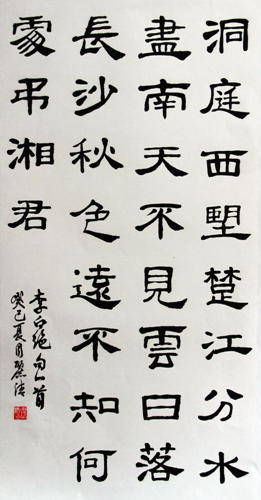 洞庭西望楚江分水
盡南天不見雲日落
長沙秋色遠不知何
處弔湘君
李白绝句一首
癸巳夏月